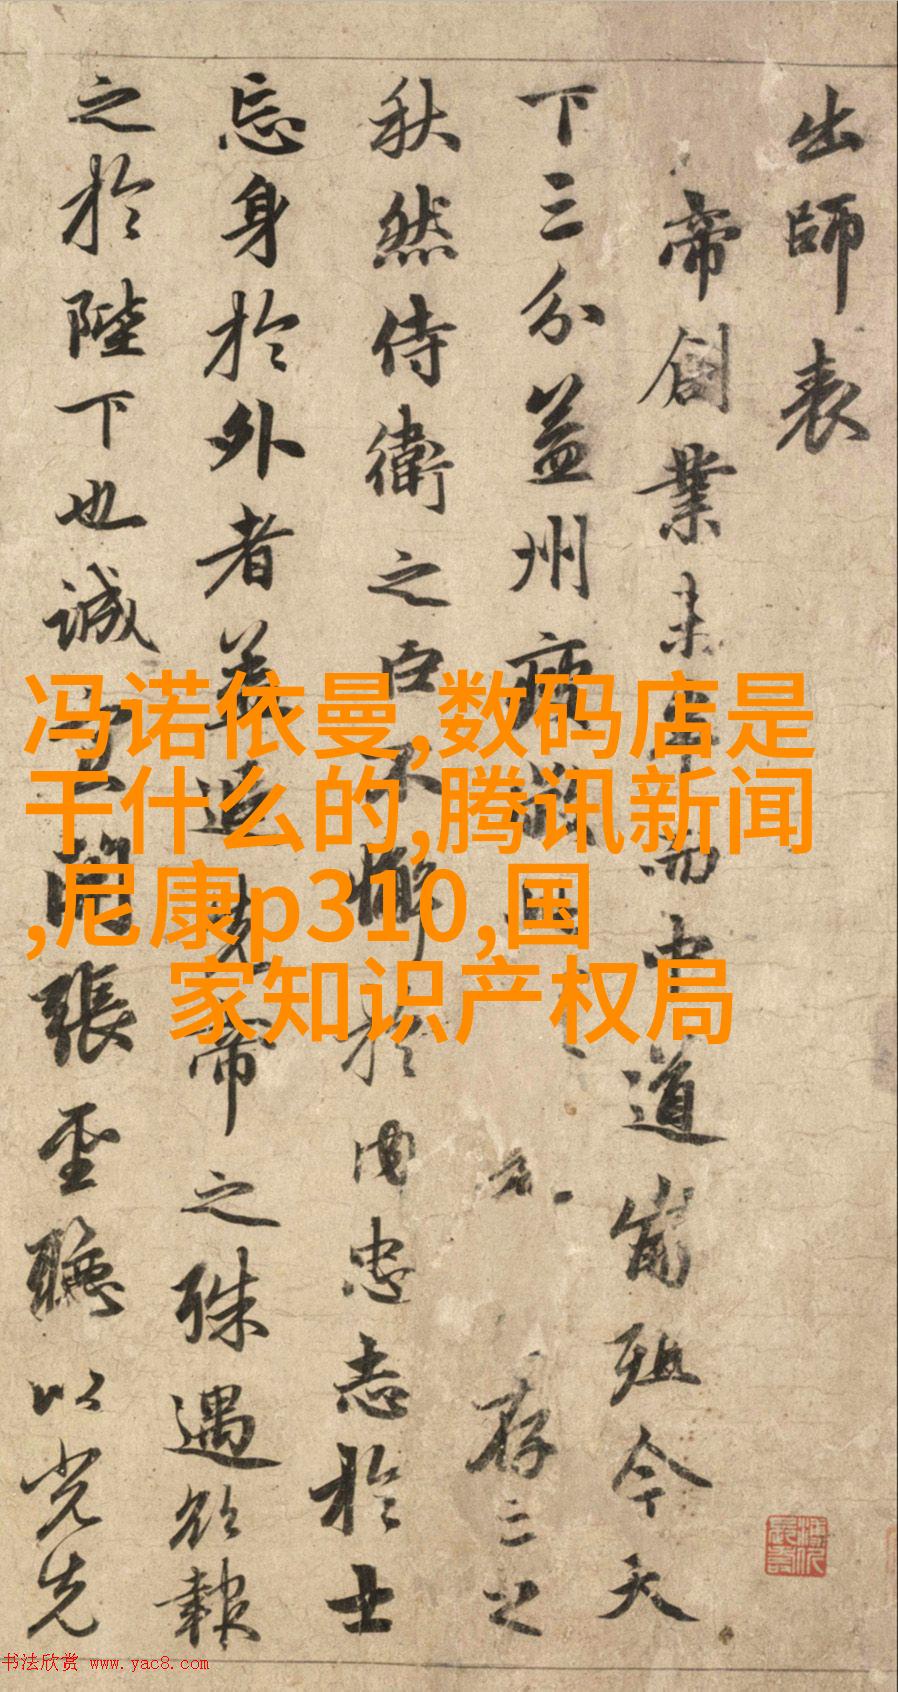 出師表
帝創業未半而中道崩殂今天
下三分益州疲敝存亡之
秋然侍衛之臣不懈於内忠志於士
忘身於外者盖追先帝之殊遇欲報
之於陛下也誠宜開張聖聽以光先
冯诺依曼,数码店是
干什么的,腾讯新闻
,尼康p310,国
家知识产权局
书法欣赏 www.yac8.com